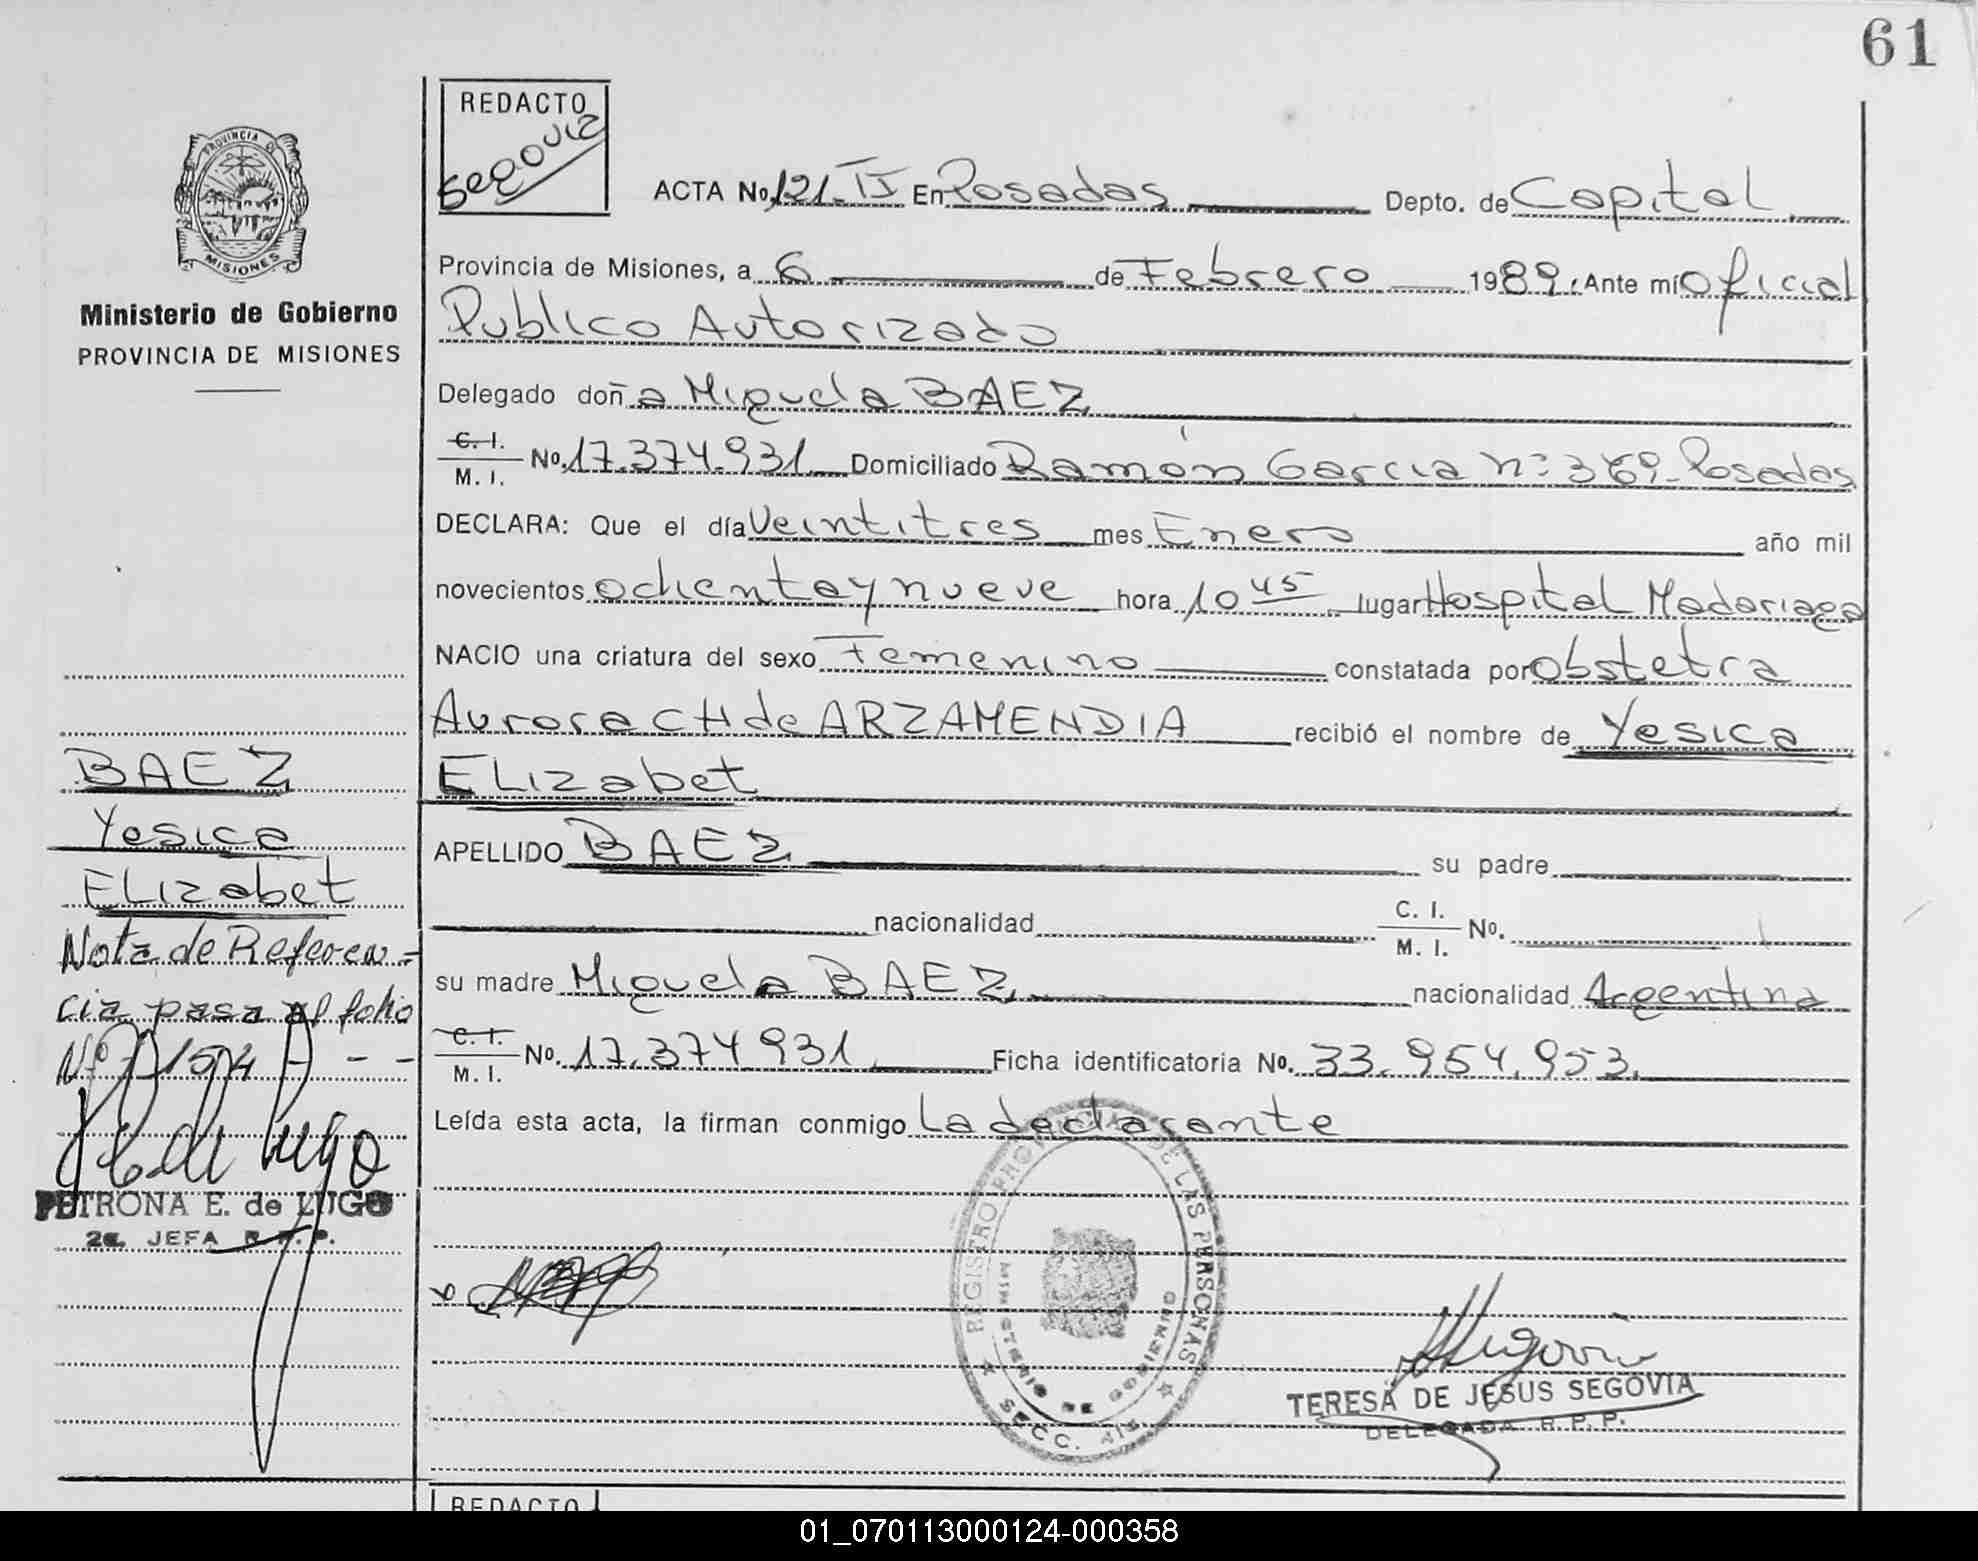 61
REDACTO
Segovia
PROVINCIA DE
MISIONES
Ministerio de Gobierno
PROVINCIA DE MISIONES
ACTA No. 121-II En Posadas Depto. de Capital
Provincia de Misiones, a 6 de Febrero 1989. Ante mí Oficial
Publico Autorizado
Delegado doña Miguela BAEZ
C. I.
M. I. No. 17.374.931 Domiciliado Ramón Garcia nº 369- Posadas
DECLARA: Que el día Veintitres mes Enero año mil
novecientos ochenta y nueve hora 10 45 lugar Hospital Madariaga
NACIO una criatura del sexo Femenino constatada por obstetra
Aurora CH de ARZAMENDIA recibió el nombre de Yesica
ELizabet
APELLIDO BAEZ su padre
nacionalidad C. I.
M. I. No.
su madre Miguela BAEZ nacionalidad Argentina
C. I.
M. I. No. 17.374.931 Ficha identificatoria No. 33.954.953.
Leída esta acta, la firman conmigo La declarante
BAEZ
Yesica
ELizabet
Nota de Referen-
cia pasa al folio
Nº 1504 - - -
PETRONA E. de LUGO
2a. JEFA R.P.P.
REGISTRO PROVINCIAL DE LAS PERSONAS
MINISTERIO DE GOBIERNO
SECC.
TERESA DE JESUS SEGOVIA
DELEGADA R.P.P.
REDACTO
01_070113000124-000358